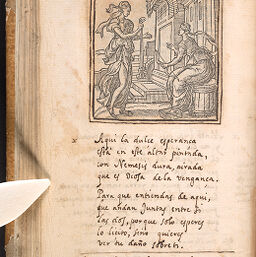 x Aqui la dulce esperanca
está en este altar pintada,
con Nemesis dura, airada
que es Diosa de la venganca.
Para que entiendas de aqui,
que andan juntas entre si
las dos, porque solo esperes
lo licito, sino quieres
ver tu daño sobre ti.